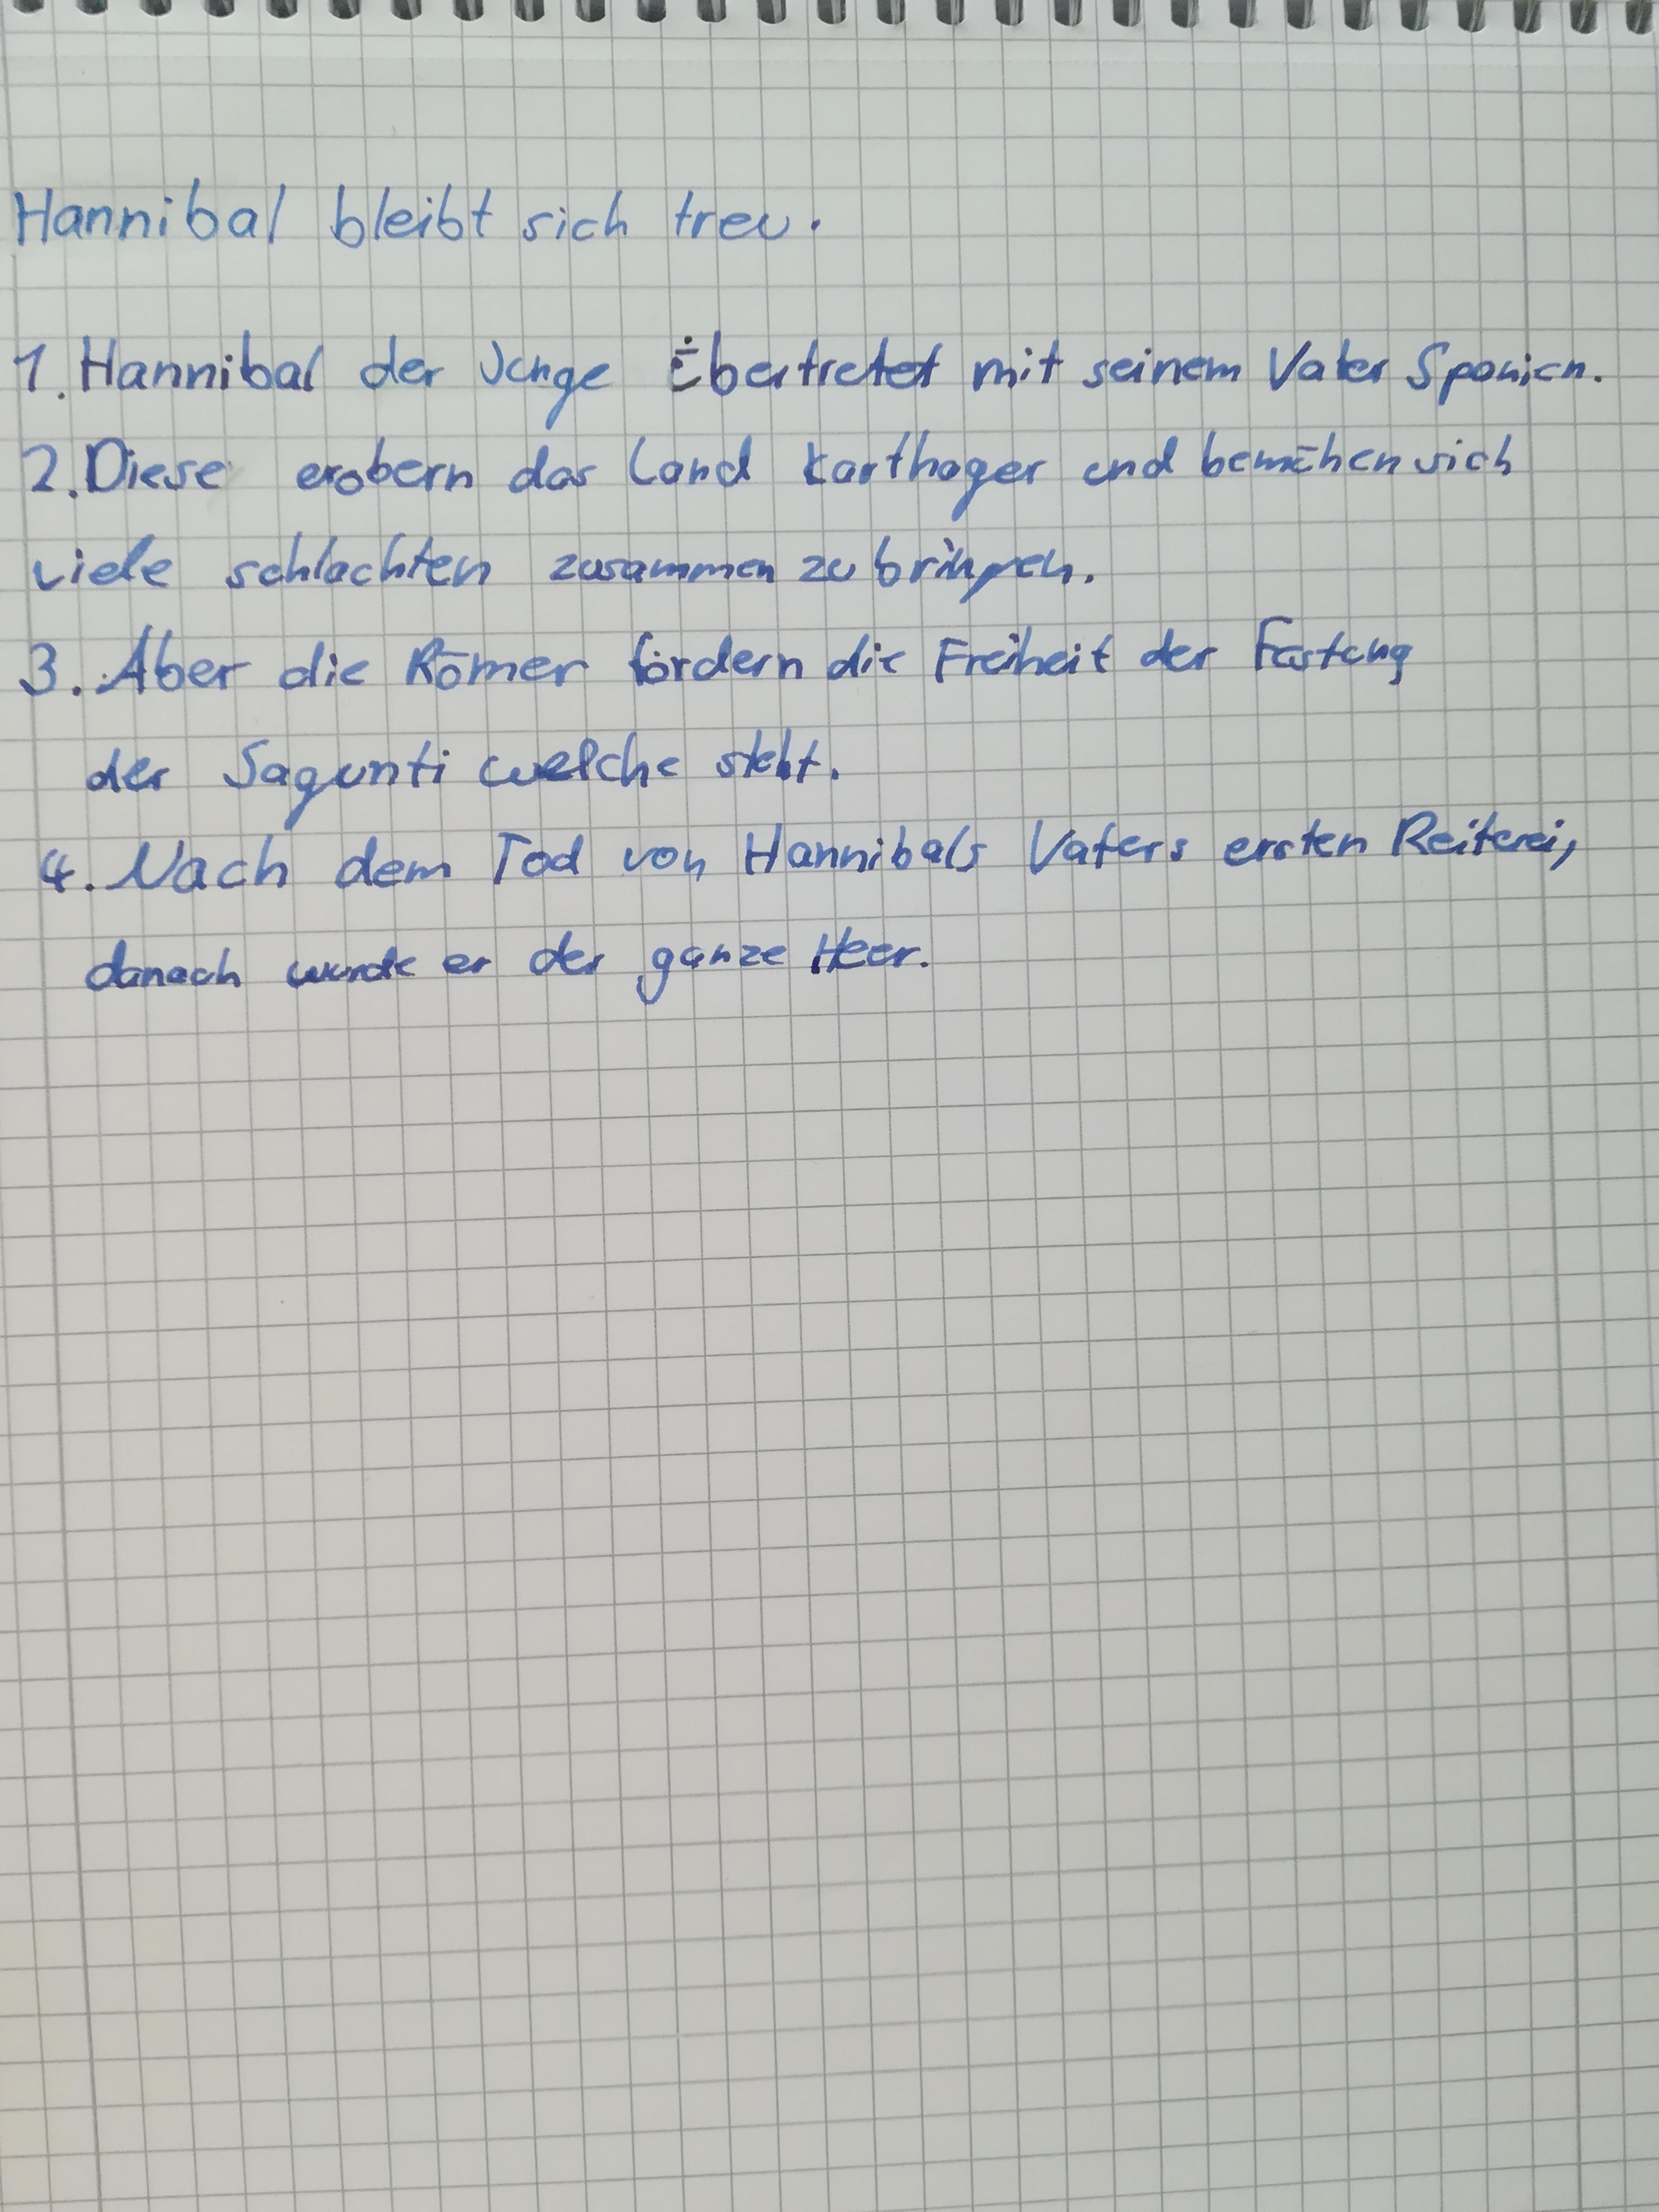 Hannibal bleibt sich treu.
1. Hannibal der Junge Übertretet mit seinem Vater Spanien.
2. Diese erobern das Land Karthager und bemühen sich
viele schlachten zusammen zu bringen.
3. Aber die Römer fördern die Freiheit der Festung
der Sagunti welche steht.
4. Nach dem Tod von Hannibals Vaters ersten Reiterei,
danach wurde er der ganze Heer.